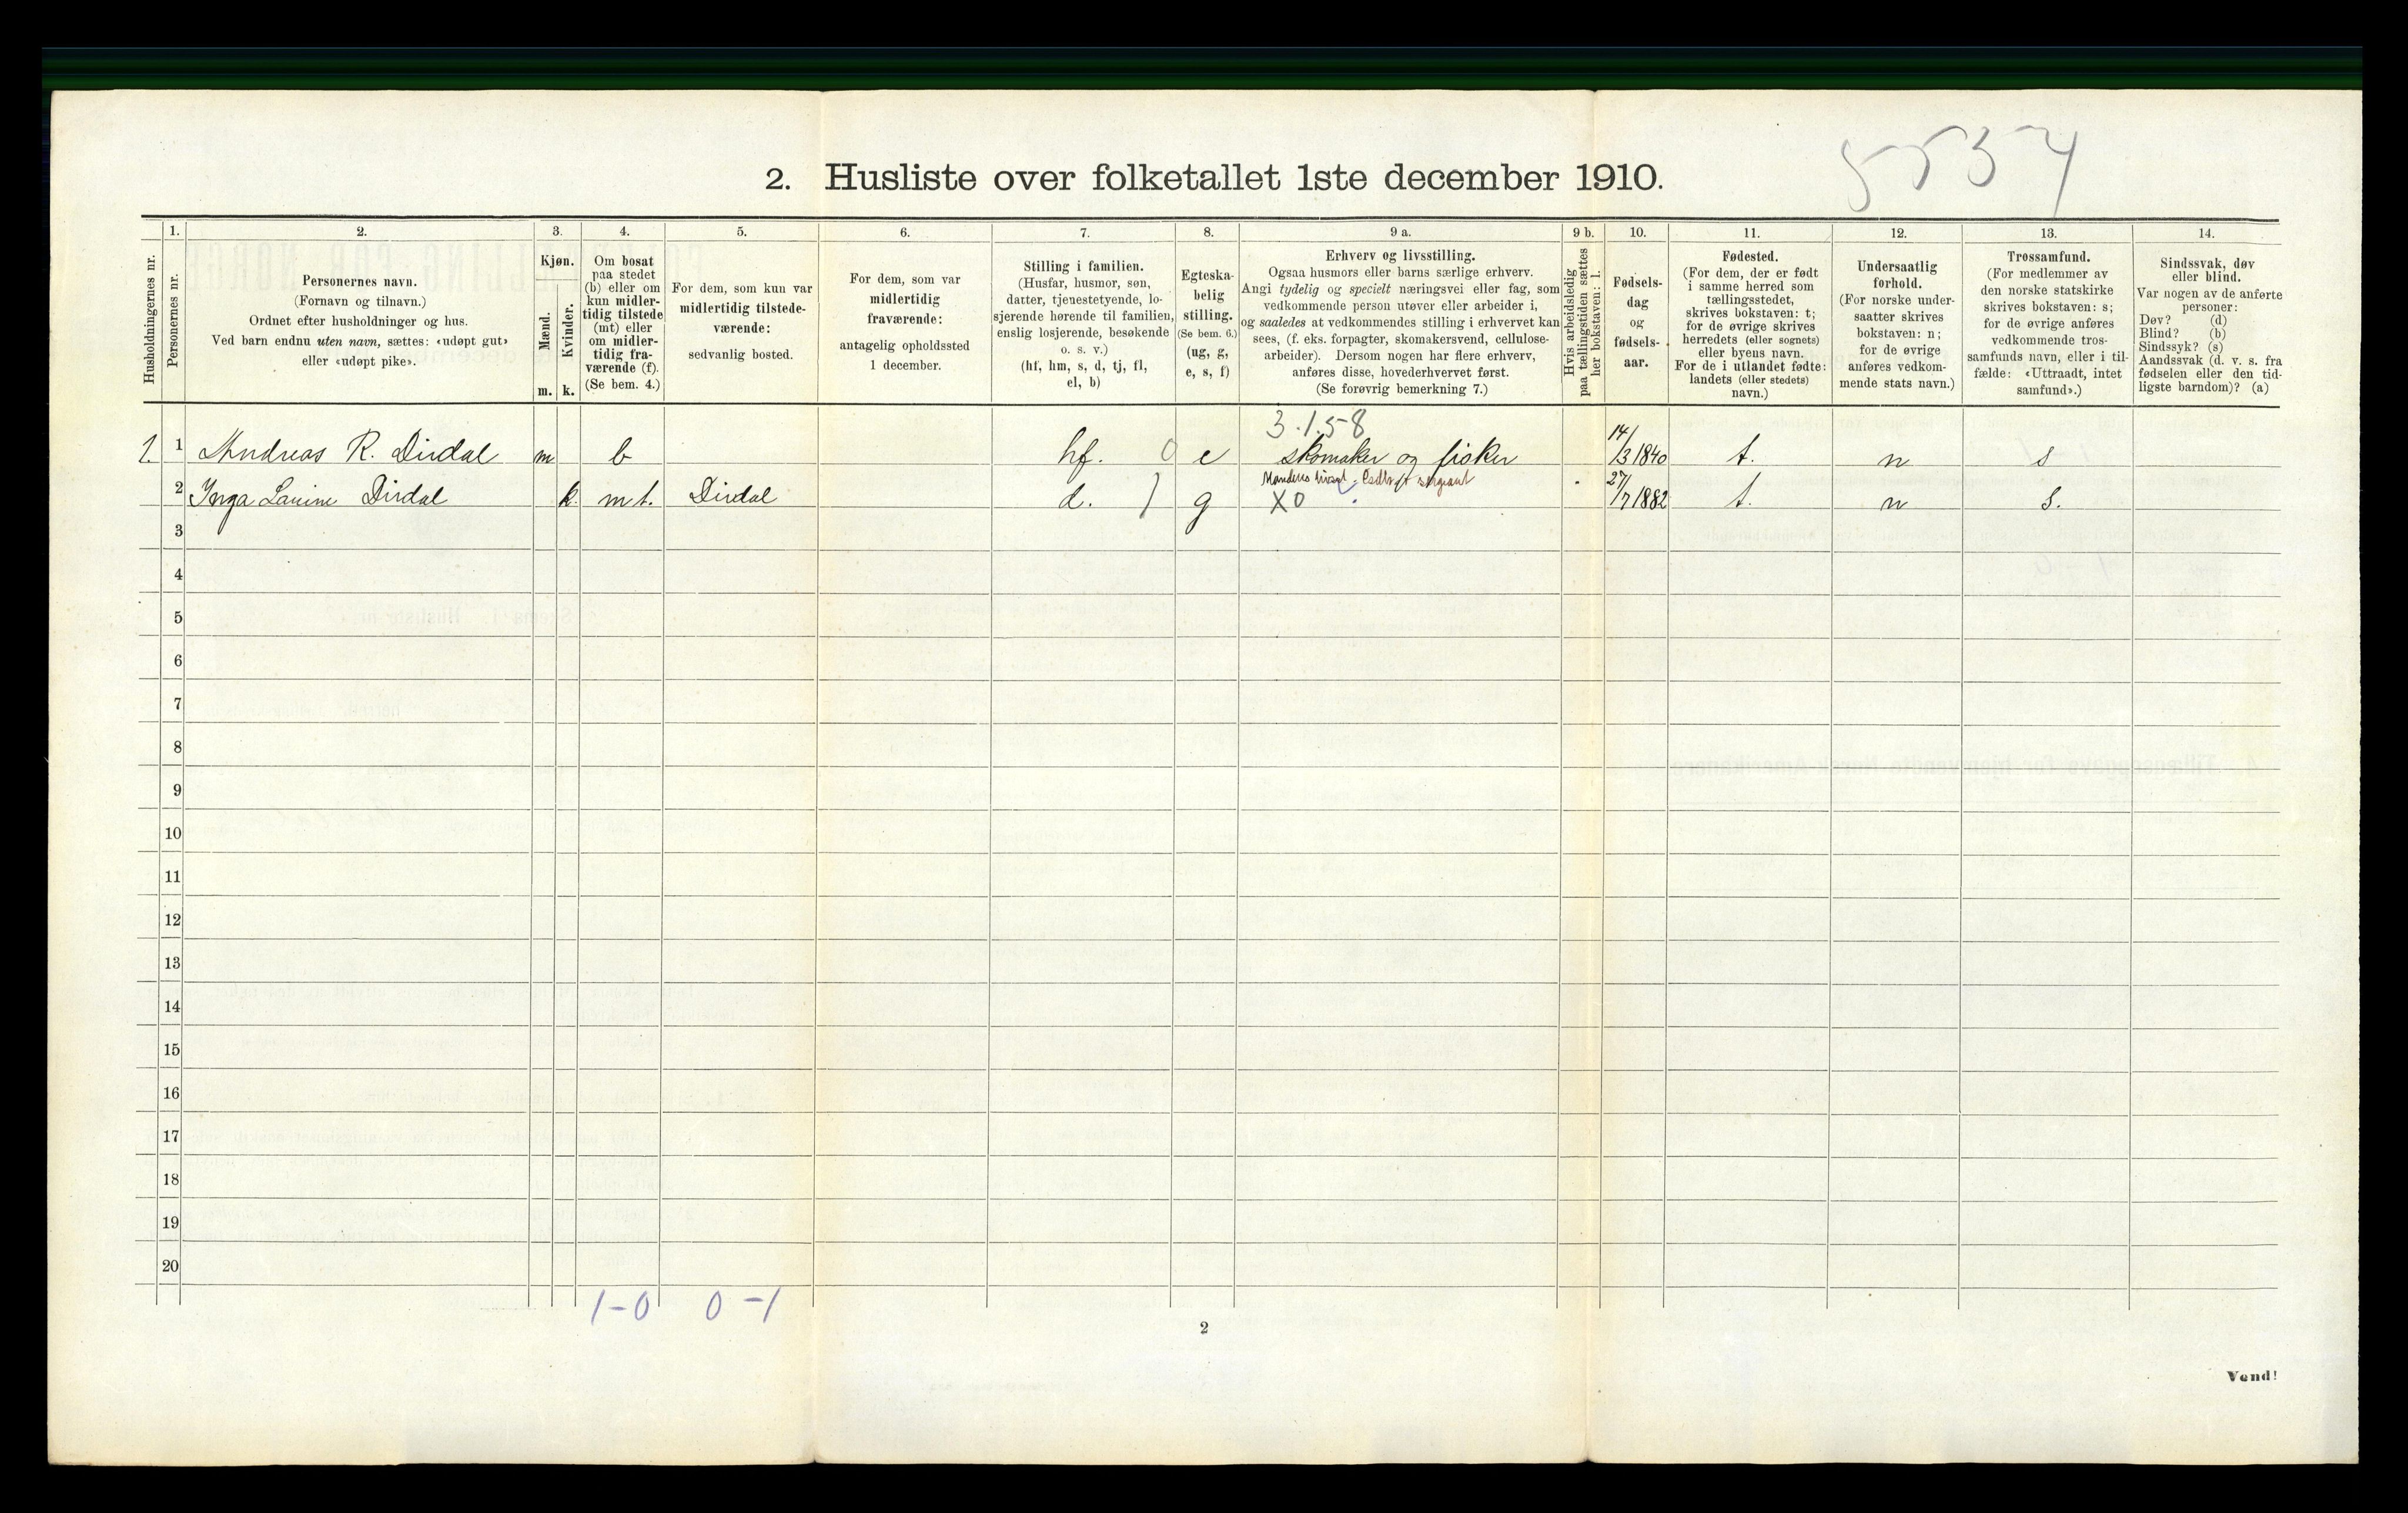 5537
2. Husliste over folketallet 1ste december 1910.
Husholdningernes nr.
1.
Personernes nr.
2.
Personernes navn.
(Fornavn og tilnavn.)
Ordnet efter husholdninger og hus.
Ved barn endnu uten navn, sættes: «udøpt gut»
eller «udøpt pike».
3.
Kjøn.
Mænd.
m.
Kvinder.
k.
4.
Om bosat
paa stedet
(b) eller om
kun midler-
tidig tilstede
(mt) eller
om midler-
tidig fra-
værende (f).
(Se bem. 4.)
5.
For dem, som kun var
midlertidig tilstede-
værende:
sedvanlig bosted.
6.
For dem, som var
midlertidig
fraværende:
antagelig opholdssted
1 december.
7.
Stilling i familien.
(Husfar, husmor, søn,
datter, tjenestetyende, lo-
sjerende hørende til familien,
enslig losjerende, besøkende
o. s. v.)
(hf, hm, s, d, tj, fl,
el, b)
8.
Egteska-
belig
stilling.
(Se bem. 6.)
(ug, g,
e, s, f)
9 a.
Erhverv og livsstilling.
Ogsaa husmors eller barns særlige erhverv.
Angi tydelig og specielt næringsvei eller fag, som
vedkommende person utøver eller arbeider i,
og saaledes at vedkommendes stilling i erhvervet kan
sees, (f. eks. forpagter, skomakersvend, cellulose-
arbeider). Dersom nogen har flere erhverv,
anføres disse, hovederhvervet først.
(Se forøvrig bemerkning 7.)
9 b.
Hvis arbeidsledig
paa tællingstiden sættes
her bokstaven: l.
10.
Fødsels-
dag
og
fødsels-
aar.
11.
Fødested.
(For dem, der er født
i samme herred som
tællingsstedet,
skrives bokstaven: t;
for de øvrige skrives
herredets (eller sognets)
eller byens navn.
For de i utlandet fødte:
landets (eller stedets)
navn.)
12.
Undersaatlig
forhold.
(For norske under-
saatter skrives
bokstaven: n;
for de øvrige
anføres vedkom-
mende stats navn.)
13.
Trossamfund.
(For medlemmer av
den norske statskirke
skrives bokstaven: s;
for de øvrige anføres
vedkommende tros-
samfunds navn, eller i til-
fælde: «Uttraadt, intet
samfund».)
14.
Sindssvak, døv
eller blind.
Var nogen av de anførte
personer:
Døv? (d)
Blind? (b)
Sindssyk? (s)
Aandssvak (d. v. s. fra
fødselen eller den tid-
ligste barndom)? (a)
3.1.58
1. 1 Andreas R. Dirdal m b hf. 0 e skomaker og fisker 14/3 1840 t. n s
2 Inga Lauine Dirdal k. mt. Dirdal d. ) g X0 27/7 1882 t. n s.
3
4
5
6
7
8
9
10
11
12
13
14
15
16
17
18
19
20
1-0 0-1
2
Vend!